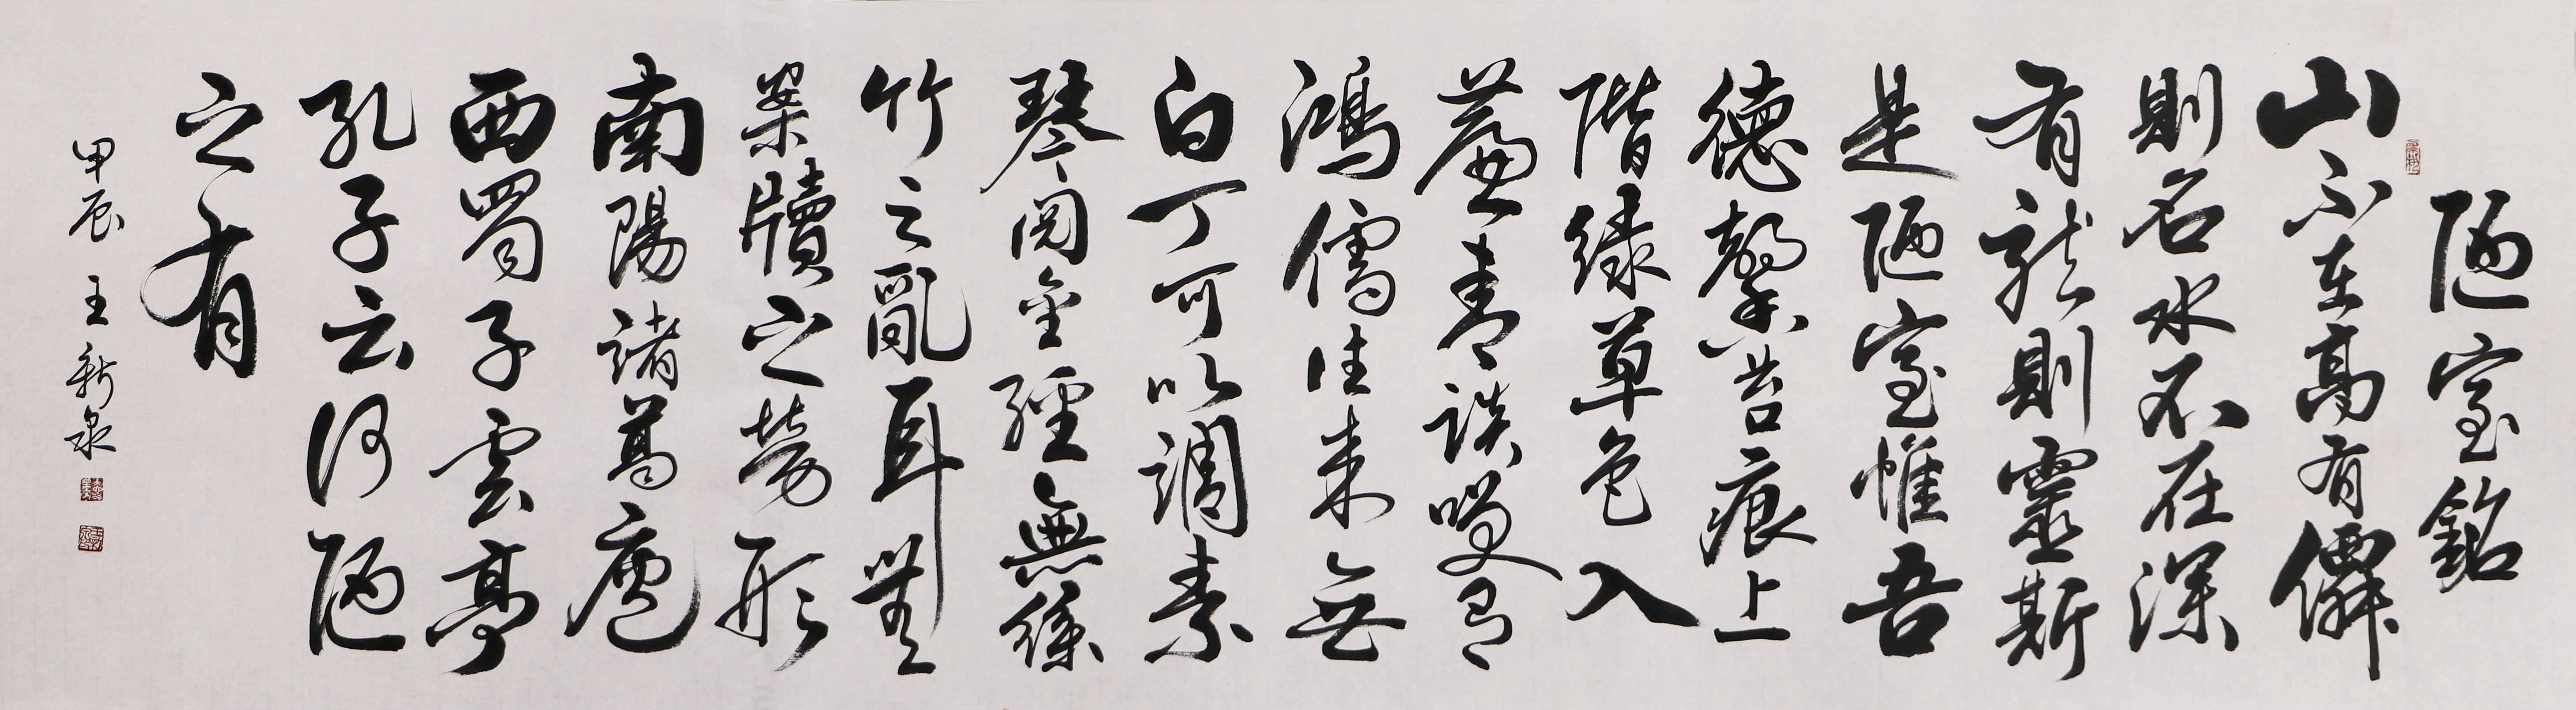 陋室銘
山不在高有僊
則名水不在深
有龍則靈斯
是陋室惟吾
德馨苔痕上
階緑草色入
簾青談咲有
鴻儒往来無
白丁可以調素
琴閱金經無絲
竹之亂耳無
案牘之勞形
南陽諸葛廬
西蜀子雲亭
孔子云何陋
之有
甲辰 王新泉